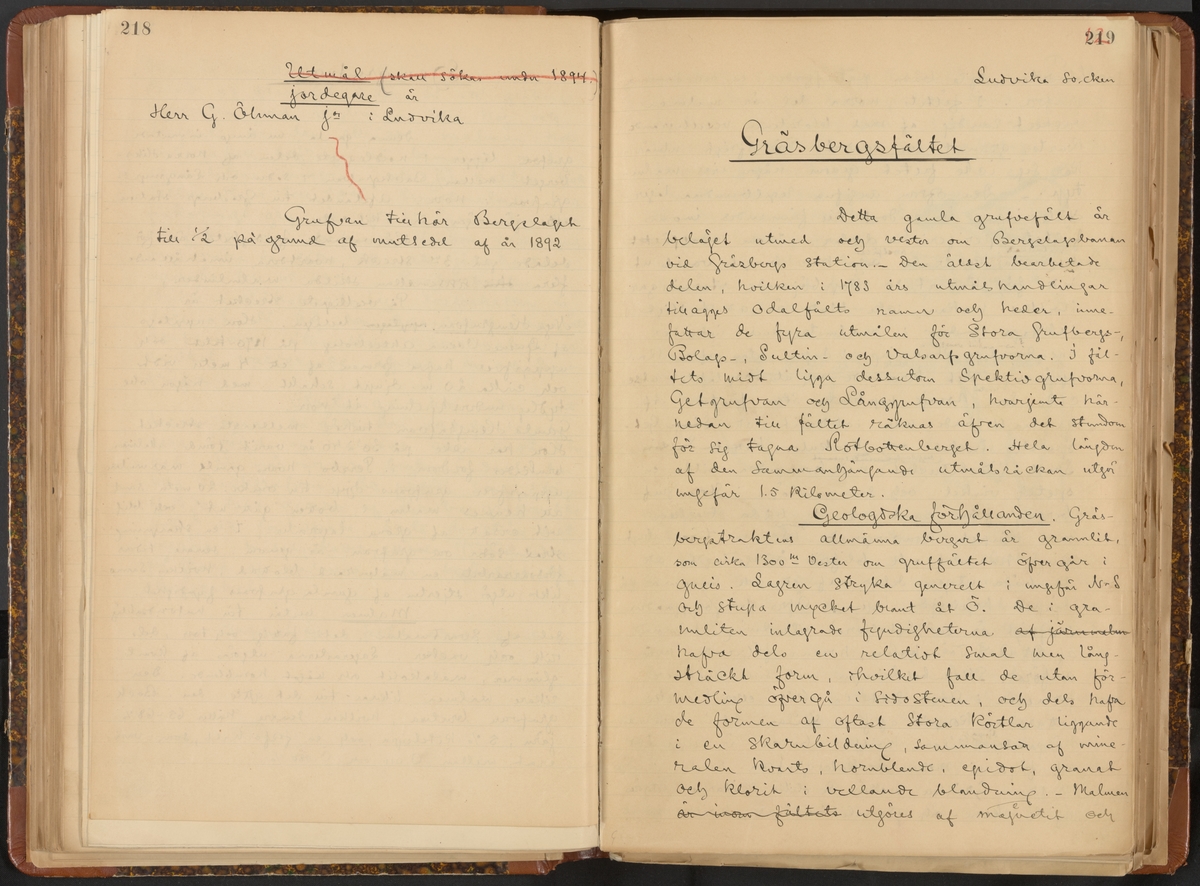 218
Utmål (skall sökas under 1894)
jordegare är
Herr G. Öhman jor i Ludvika
Grufvan tillhör Bergslaget
till 1/2 på grund af mutsedel af år 1892
219
Ludvika socken
Gräsbergsfältet
Detta gamla grufvefält är
beläget utmed och vester om Bergslagsbanan
vid Gräsbergs station. – Den äldst bearbetade
delen, hvilken i 1783 års utmålshandlingar
tillägges Odalfälts namn och heder, inne-
fattar de fyra utmålen för Stora Grufbergs-,
Bolags-, Sultin- och Valsarfsgrufvorna. I fäl-
tets midt ligga dessutom Spektivgrufvorna,
Getgrufvan och Långgrufvan, hvarjemte här-
nedan till fältet räknas äfven det stundom
för sig tagna Rotbottenberget. Hela längden
af den sammanhängande utmålsräckan utgör
ungefär 1.5 kilometer.
Geologiska förhållanden. Gräs-
bergstraktens allmänna bergart är granulit,
som cirka 1300 m vester om gruffältet öfvergår i
gneis. Lagren stryka generelt i ungefär N-S
och stupa mycket brant åt Ö. De i gra-
nuliten inlagrade fyndigheterna af järnmalm
hafva dels en relativt smal men lång-
sträckt form, i hvilket fall de utan för-
medling öfvergå i sidostenen, och dels hafva
de formen af oftast stora körtlar liggande
i en skarnbildning, sammansatt af mine-
ralen kvarts, hornblende, epidot, granat
och klorit i vexlande blandning. – Malmen
är inom fältets utgöres af magnetit och